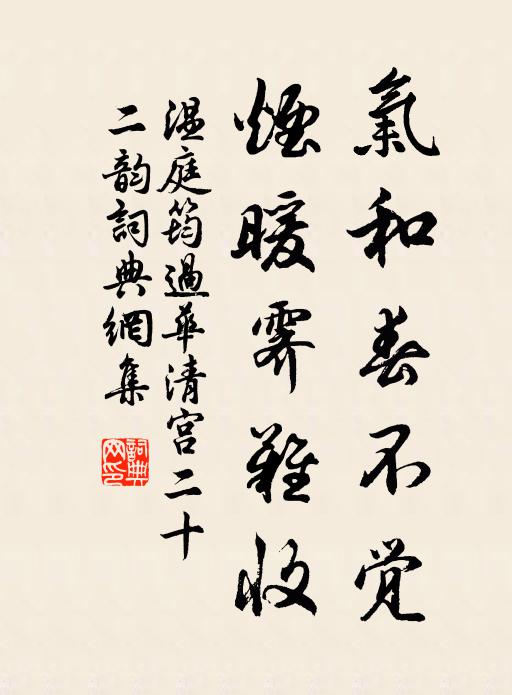 氣和春不觉
煙暖霽難收
温庭筠過華清宫二十
二韵詞典網集
詞典
网印